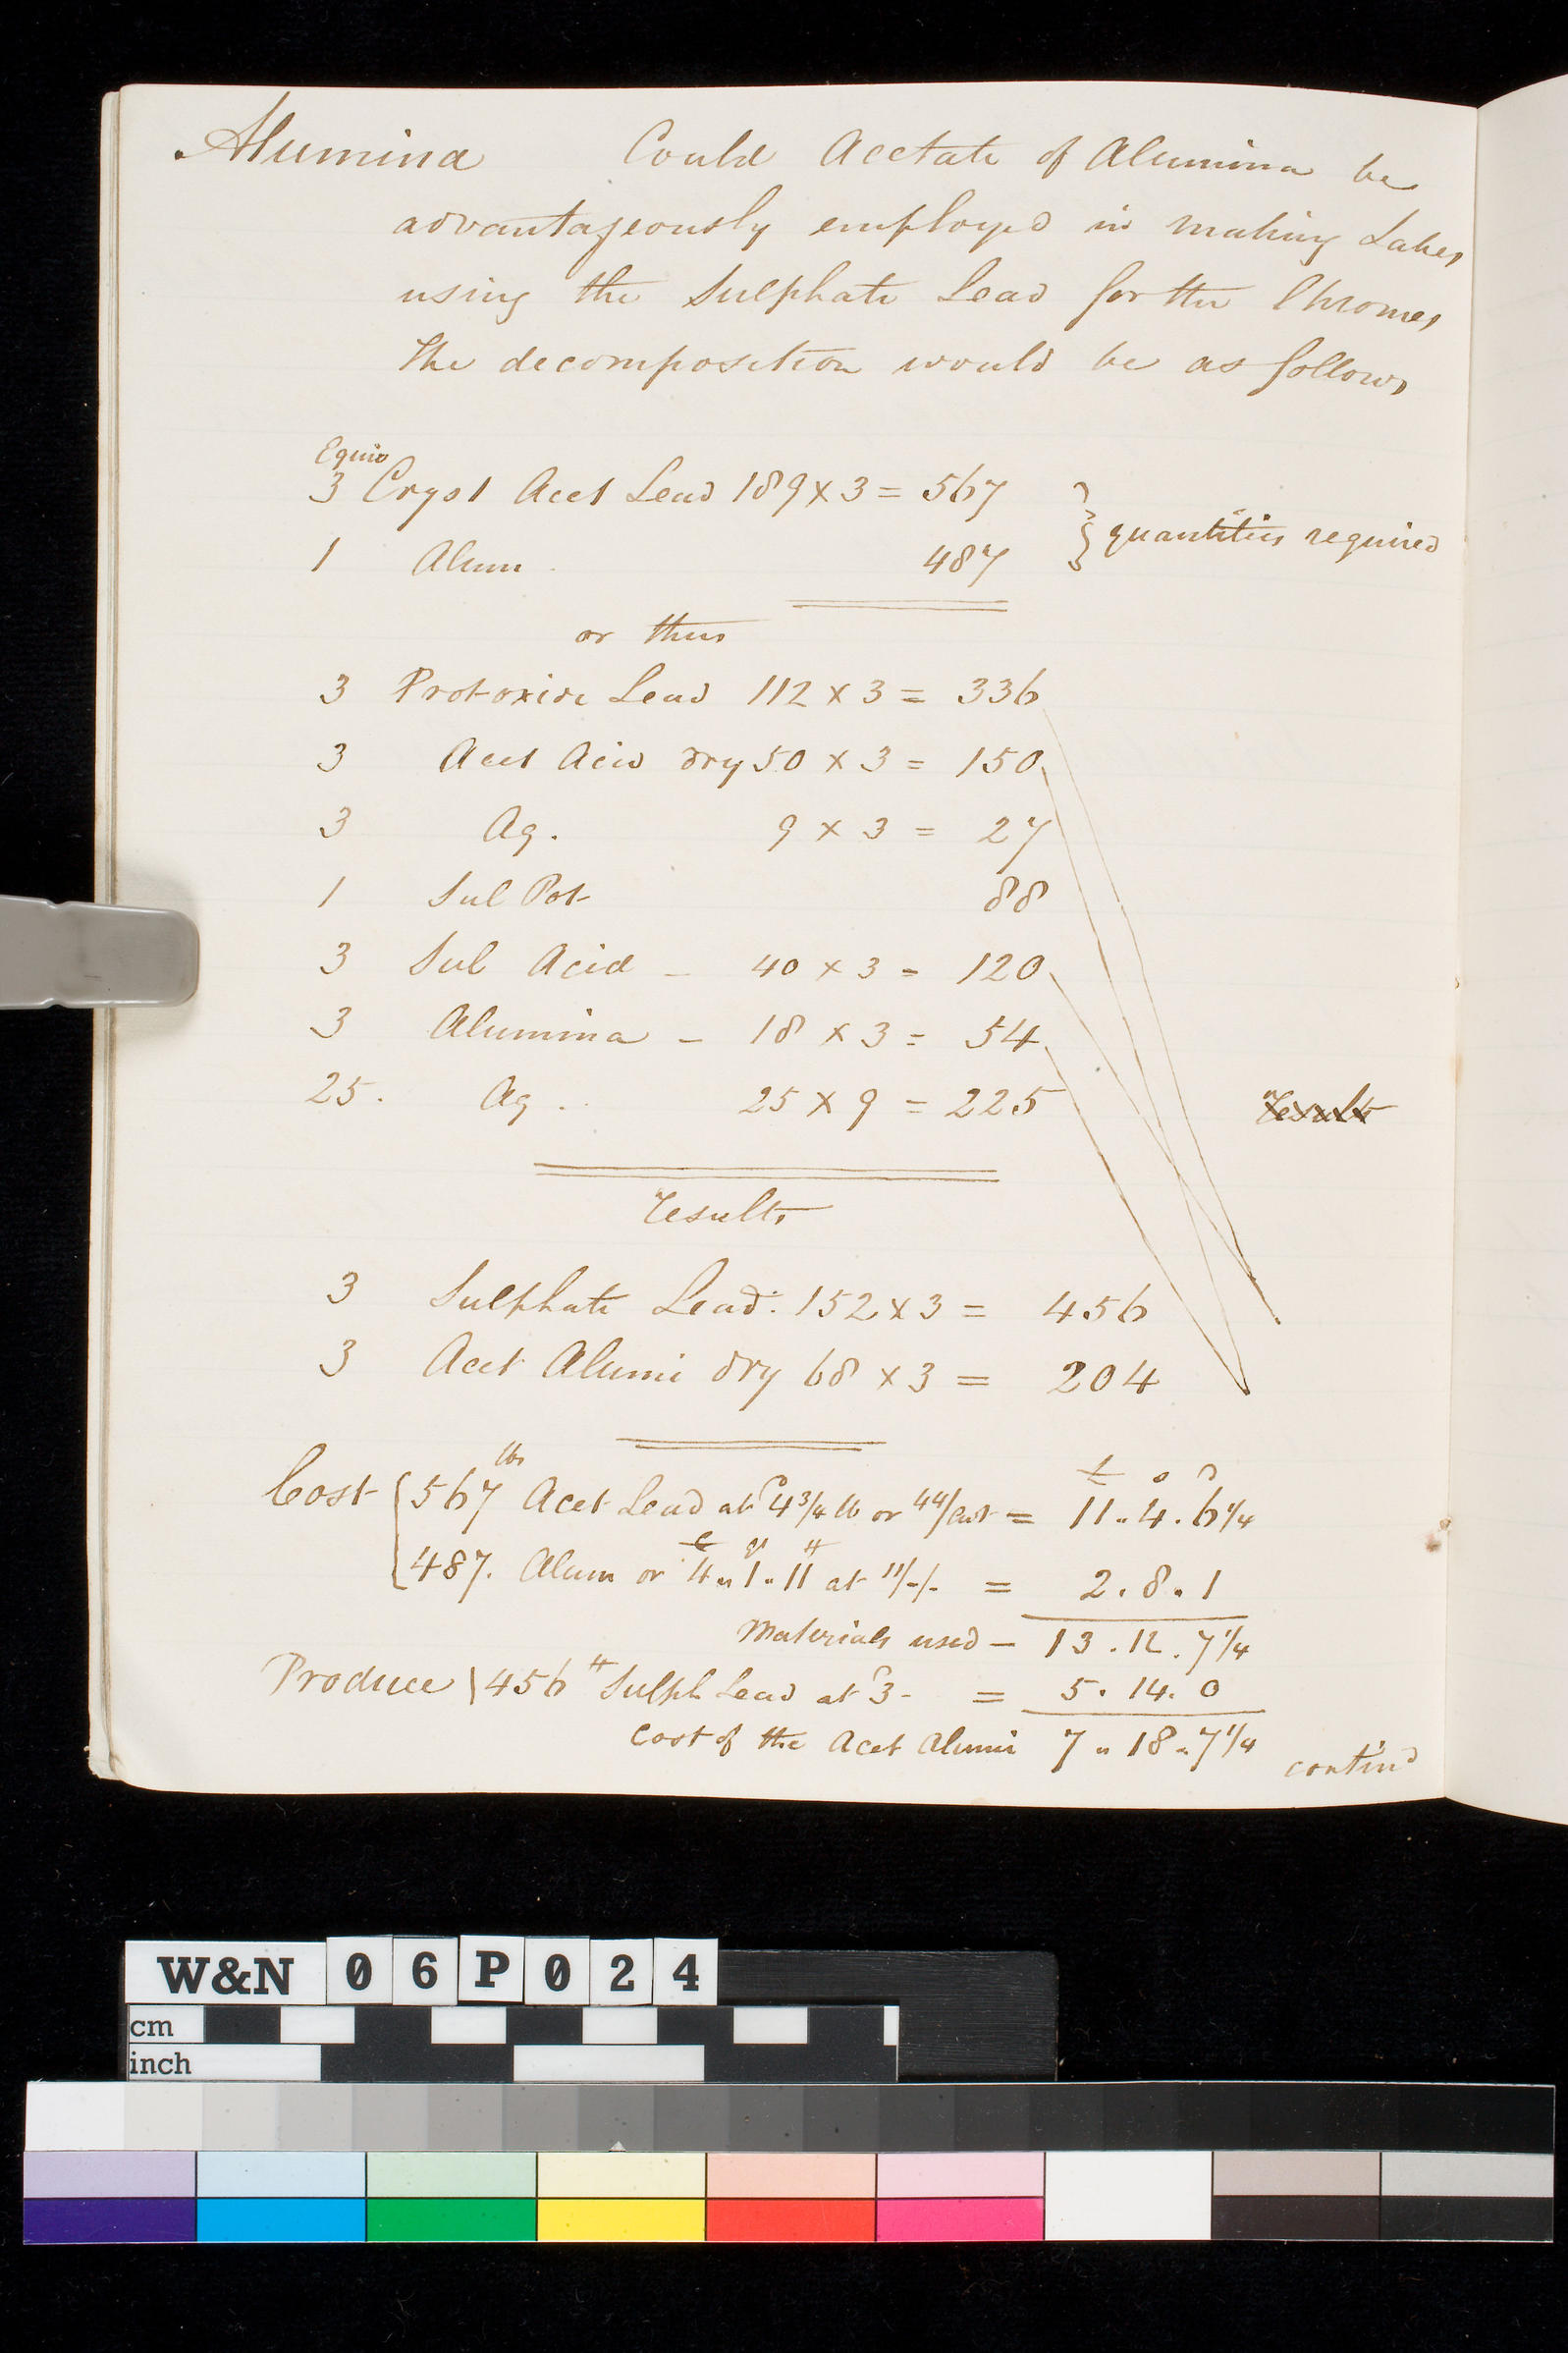 Alumina Could Acetate of Alumina be
advantageously employed in making Lakes
using the Sulphate Lead for the Chromes
The decomposition would be as follows
Equiv
3 Cryst Acet Lead 189 x 3 = 567
1 Alum 487
} quantities required
or thus
3 Protoxide Lead 112 x 3 = 336
3 Acet Acid dry 50 x 3 = 150
3 Aq. 9 x 3 = 27
1 Sul Pot 88
3 Sul Acid - 40 x 3 = 120
3 Alumina - 18 x 3 = 54
25. Aq. 25 x 9 = 225
Results
Results
3 Sulphate Lead. 152 x 3 = 456
3 Acet Alumi dry 68 x 3 = 204
lbs £ s d
Cost { 567 Acet Lead at d 4 3/4 lb or 44/cwt = 11.4.6 1/4
c qr #
487. Alum or 4.1.11 at 11/-/- = 2.8.1
Materials used - 13.12.7 1/4
Produce \ 456 # Sulph Lead at d 3- = 5.14.0
Cost of the Acet Alumi 7.18.7 1/4
contind
W&N 06P024
cm
inch